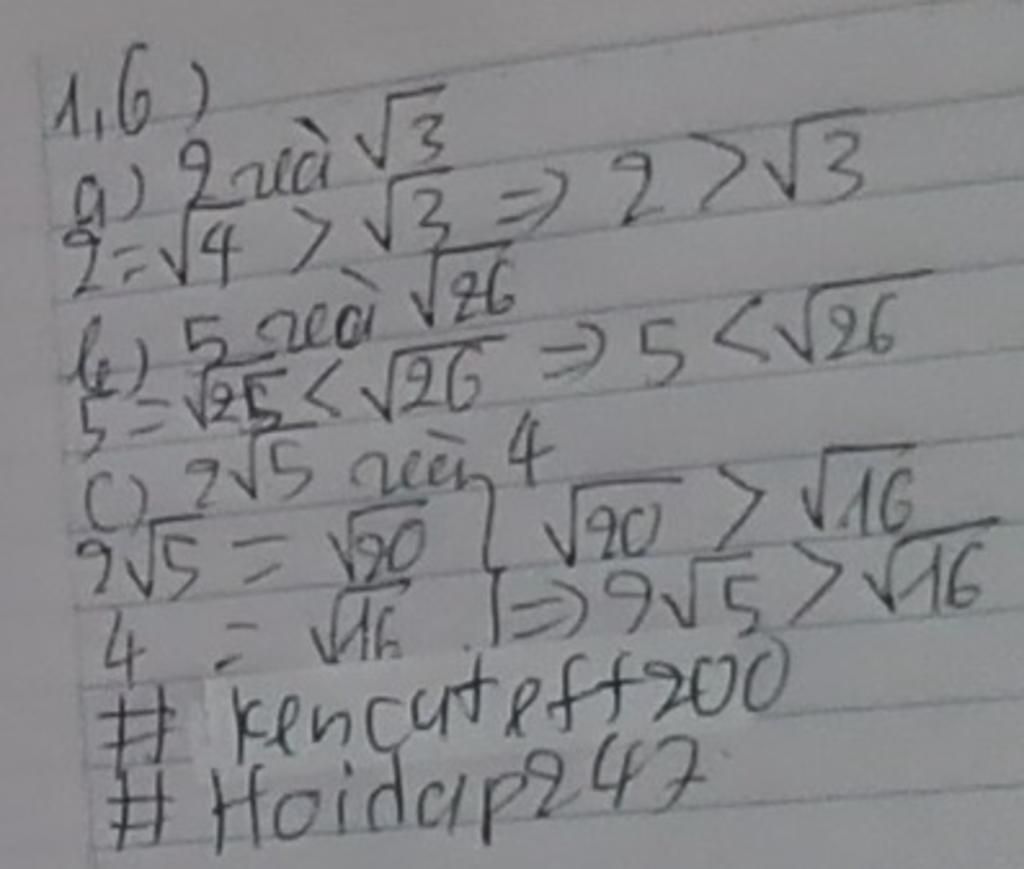 1,6)
a) 2 và √3
2 = √4 > √3 => 2 > √3
b) 5 và √26
5 = √25 < √26 => 5 < √26
c) 2√5 và 4
2√5 = √20 } √20 > √16
4 = √16 } => 2√5 > √16
# kencuteff200
# Hoidap247